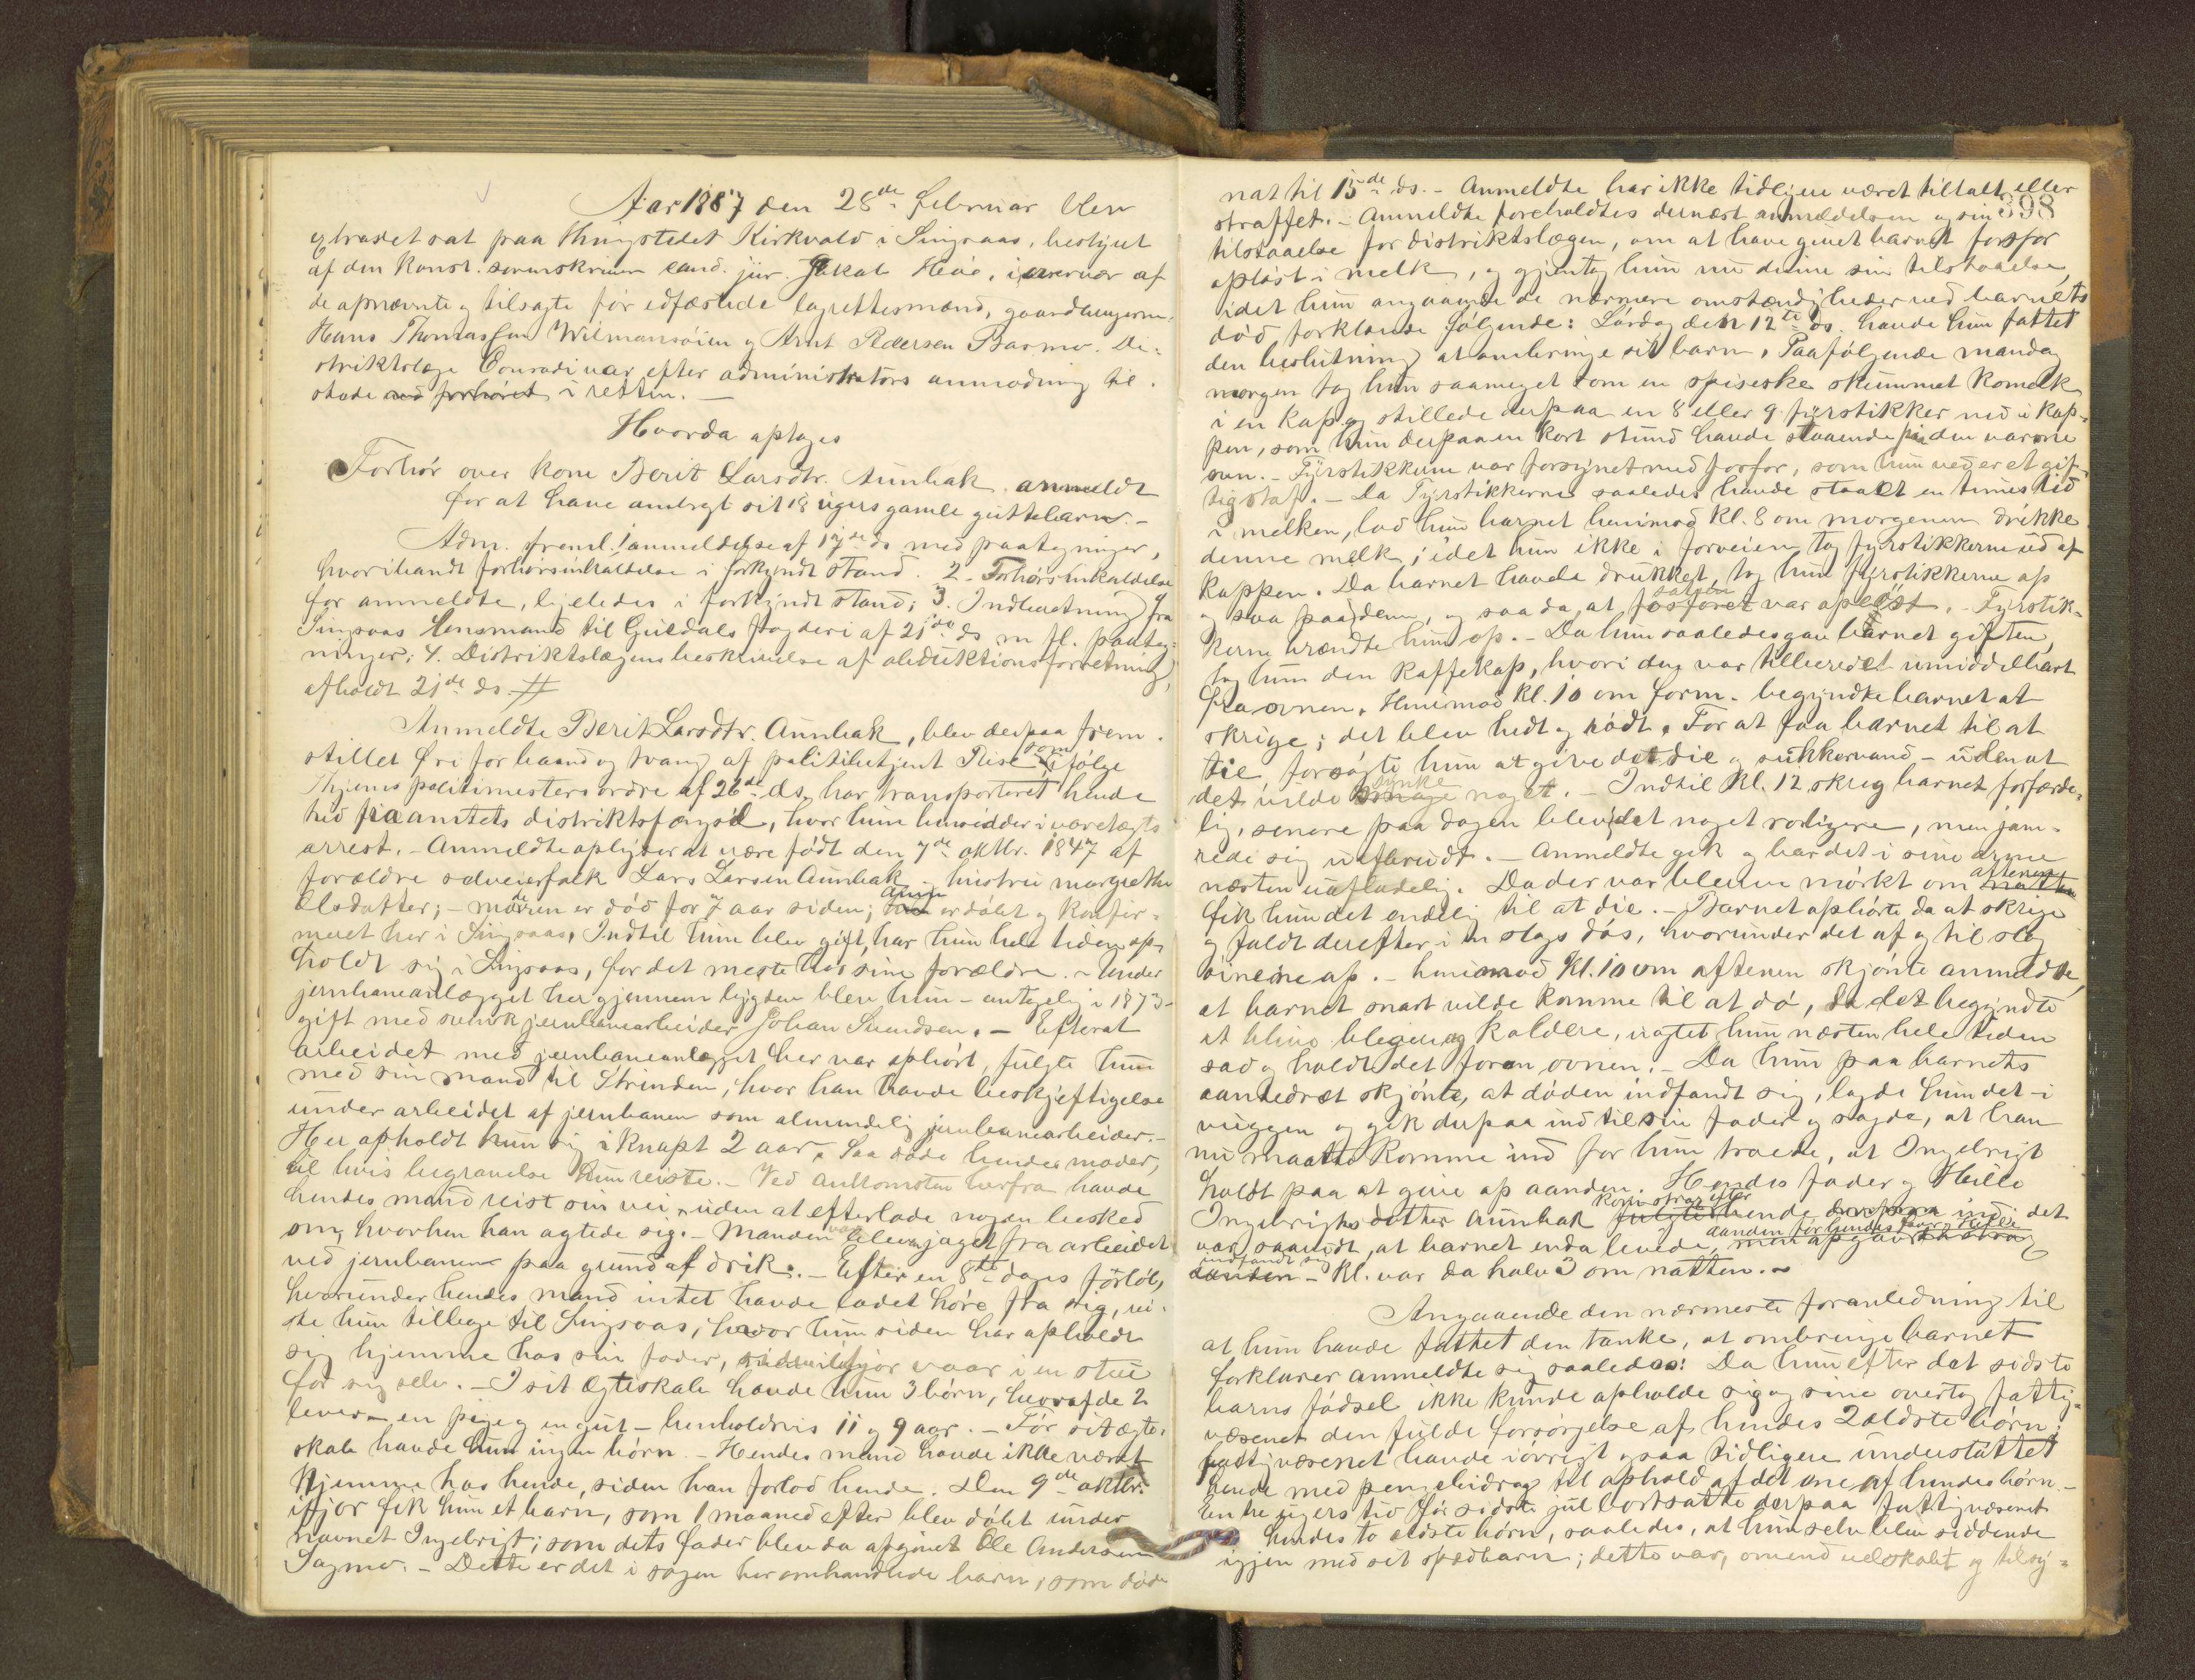 Aar 1887 den 28de februar blev
extraret sat paa thingstedet Kirkvold i Singsaas, bestyret
af den konst. sorenskriver cand. jur. Jakob Høe, i overvær af
de opnævnte og tilsagte før edfæstede lagrettesmænd, gaardbrugerne
Hans Thomassen Wilmansøien og Arnt Pedersen Barmo. Di-
striktslæge Conradi var efter administrators anmodning til-
stede ved forhøret i retten. —
Hvorda optoges
Forhør over kone Berit Larsdtr. Aunbak anmeldt
for at have ombragt sit 18 ugers gamle guttebarn. —
Adm. freml. 1 anmeldelse af 17de ds med paategninger,
hvoriblandt forhørsindkaldelse i forkyndt stand. 2. Forhørsindkaldelse
for anmeldte, ligeledes i forkyndt stand; 3. Indberetning fra
Singsaas lensmand til Guldals fogderi af 21de ds m fl. paateg-
ninger; 4. Distriktslægens beskrivelse af obduktionsforretning,
afholdt 21de ds. #
Anmeldte Berit Larsdtr. Aunbak, blev derpaa frem-
stillet fri for baand og tvang af politibetjent Rise som ifølge
Thjems politimesters ordre af 26de ds, har transporteret hende
hid fra amtets distriktsfængsel, hvor hun hensidder i varetægts
arrest. – Anmeldte oplyser at være født den 7de oktbr. 1847 af
forældre selveierfolk Lars Larsen Aunbak og hustru Margrethe
Olsdatter; – moderen er død for 7 aar siden; hun er døbt og konfir-
meret her i Singsaas. Indtil hun blev gift, har hun hele tiden op-
holdt sig i Singsaas, for det meste hos sine forældre. – Under
jernbaneanlægget her gjennem bygden blev hun – antagelig i 1873 –
gift med svensk jernbanearbeider Johan Svendsen. – Efterat
arbeidet med jernbaneanlægget her var ophørt, fulgte hun
med sin mand til Strinden, hvor han havde beskjæftigelse
under arbeidet af jernbanen som almindelig jernbanearbeider. –
Her opholdt hun sig i knapt 2 aar. Saa døde hendes moder,
til hvis begravelse hun reiste. – Ved ankomsten herfra havde
hendes mand reist sin vei, uden at efterlade nogen besked
om, hvorhen han agtede sig. – Manden var bleven jaget fra arbeidet
ved jernbanen paa grund af drik. – Efter en 8te dages forløb,
hvorunder hendes mand intet havde ladet høre fra sig, rei-
ste hun tilbage til Singsaas, hvor hun siden har opholdt
sig hjemme hos sin fader, ifjor vaar i en stue
for sig selv. – I sit ægteskab havde hun 3 børn, hvoraf de 2
lever – en pige og en gut – henholdsvis 11 og 9 aar. – Før sit ægte-
skab havde hun ingen børn. – Hendes mand havde ikke været
hjemme hos hende, siden han forlod hende. Den 9de oktbr.
ifjor fik hun et barn, som 1 maaned efter blev døbt under
navnet Ingebrigt; som dets fader blev da opgivet Ole Andersen
Sagmo. – Dette er det i sagen her omhandlede barn, som døde
nat til 15de ds. – Anmeldte har ikke tidligere været tiltalt eller
398
straffet. – Anmeldte foreholdtes dernæst anmeldelsen og sin
tilstaaelse for distriktslægen, om at have givet barnet fosfor
opløst i melk, og gjentog hun nu denne sin tilstaaelse,
idet hun angaaende de nærmere omstændigheder ved barnets
død forklarede følgende: Lørdag den 12te ds. havde hun fattet
den beslutning at ombringe sit barn. Paafølgende mandag
morgen tog hun saameget som en spiseske skummet komelk
i en kop og stillede derpaa en 8 eller 9 fyrstikker ned i kop-
pen, som hun derpaa en kort stund havde staaende paa den varme
ovn. – Fyrstikkerne var forsynet med fosfor, som hun ved er et gif-
tig stof. – Da Fyrstikkerne saaledes havde staaet en times tid
i melken, lod hun barnet henimod Kl. 8 om morgenen drikke
denne melk; idet hun ikke i forveien tog fyrstikkerne ud af
koppen. Da barnet havde drukket, tog hun fyrstikkerne op
og saa paa dem, og saa da, at satsen fosforet var opløst. – Fyrstik-
kerne brændte hun op. – Da hun saaledes gav barnet giften,
tog hun den kaffekop, hvori den var tilberedet umiddelbart
fra ovnen. Henimod Kl. 10 om form. begyndte barnet at
skrige; det blev hedt og rødt. For at faa barnet til at
tie, forsøgte hun at give det die og sukkervand – uden at
det vilde synke smage noget. – Indtil Kl. 12 skreg barnet forfærde-
lig, senere paa dagen blev det noget roligere, men jam-
rede sig uafbrudt. – Anmeldte gik og bar det i sine arme
næsten uafladelig. Da der var bleven mørkt om aftenen natten
fik hun det endelig til at die. – Barnet ophørte da at skrige
og faldt derefter i en slags døs, hvorunder det af og til slog
øinene op. – henimod Kl. 10 om aftenen skjønte anmeldte,
at barnet snart vilde komme til at dø, da det begyndte
at blive blegere og koldere, uagtet hun næsten hele tiden
sad og holdt det foran ovnen. – Da hun paa barnets
aandedræt skjønte, at døden indfandt sig, lagde hun det i
vuggen og gik derpaa ind til sin fader og sagde, at han
nu maatte komme ind for hun troede, at Ingebrigt
holdt paa at give op aanden. Hendes fader og Helle
Ingebrigtsdatter Aunbak kom strax efter fulgte hende derpaa ind; det
var saavidt, at barnet enda levede, aanden før hendes fader og Helle men opgav strax
indfandt sig aanden – Kl. var da halv 3 om natten. –
Angaaende den nærmeste foranledning til
at hun havde fattet den tanke, at ombringe barnet
forklarer anmeldte sig saaledes: Da hun efter dat sidste
barns fødsel ikke kunde opholde sig og sine overtog fattig-
væsenet den fulde forsørgelse af hendes 2 ældste børn;
fattigvæsenet havde iøvrigt ogsaa tidligere understøttet
hende med pengebidrag til ophold af det ene af hendes børn –
En tre ugers tid før sidste jul bortsatte derpaa fattigvæsenet
hendes to eldste børn, saaledes, at hun selv blev siddende
igjen med sit spædbarn; dette var, omend velskabt og tilsy-